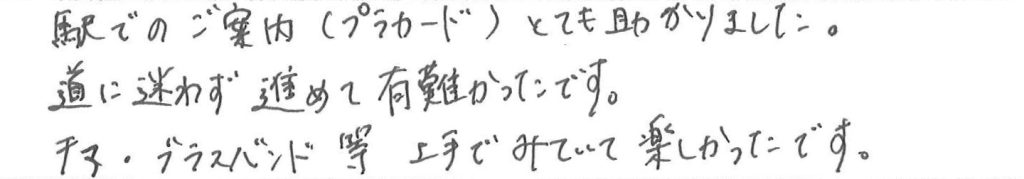 駅でのご案内（プラカード）とても助かりました。
道に迷わず進めて有難かったです。
チア・ブラスバンド等 上手でみていて楽しかったです。